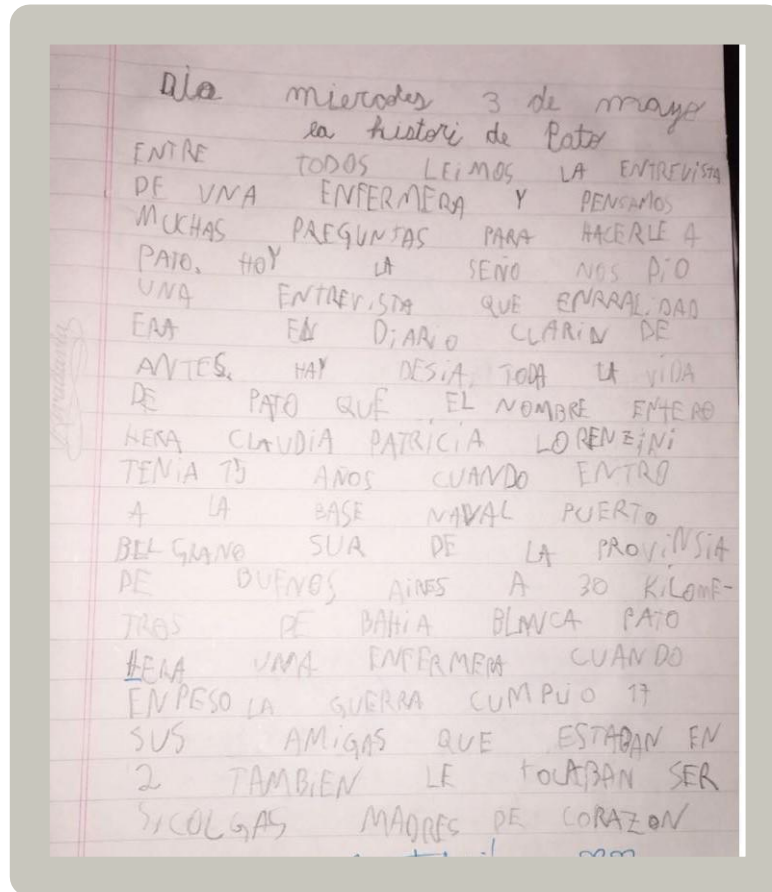 Dia miercoles 3 de mayo
la histori de Pato
ENTRE TODOS LEiMOS LA ENTREVISTA
DE UNA ENFERMERA Y PENSAMOS
MUCHAS PREGUNTAS PARA HACERLE A
PATO. HOY LA SEÑO NOS DiO
UNA ENTREViSTA QUE ENRRALiDAD
ERA EN DiARiO CLARiN DE
ANTES. HAY DESiA TODA LA ViDA
DE PATO QUE EL NOMBRE ENTERO
HERA CLAUDiA PATRiCiA LORENZiNi
TENiA 15 AÑOS CUANDO ENTRO
A LA BASE NAVAL PUERTO
BELGRANO SUR DE LA PROViNSiA
DE BUENOS AiRES A 30 KiLOME-
TROS DE BAHiA BLANCA PATO
HERA UNA ENFERMERA CUANDO
ENPESO LA GUERRA CUMPLIO 17
SUS AMiGAS QUE ESTABAN EN
2 TAMBiEN LE TOCABAN SER
SiCOLGAS MADRES DE CORAZON